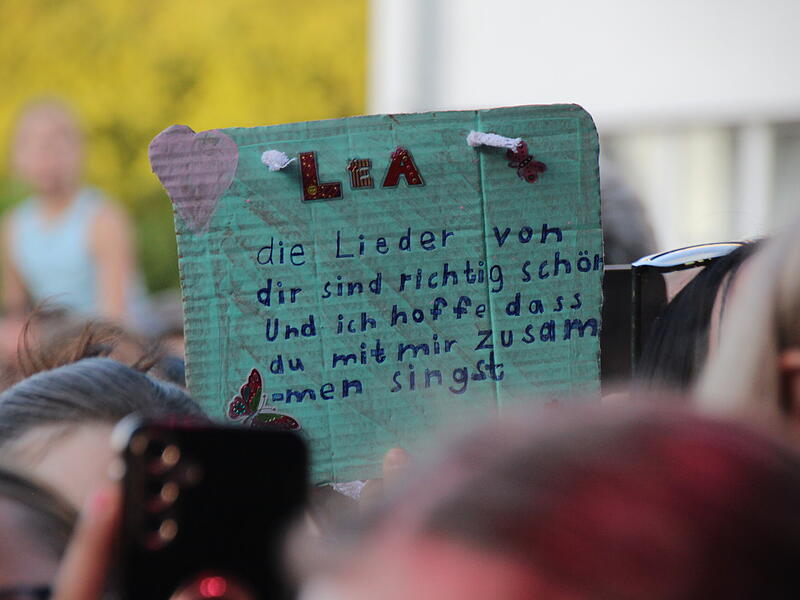 LEA
die Lieder von
dir sind richtig schön
Und ich hoffe dass
du mit mir zusam
-men singst